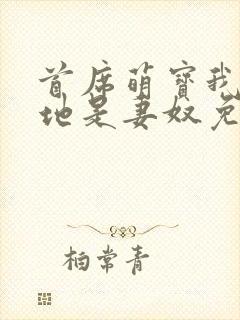 首席萌寶我
地是妻奴免
柏常青